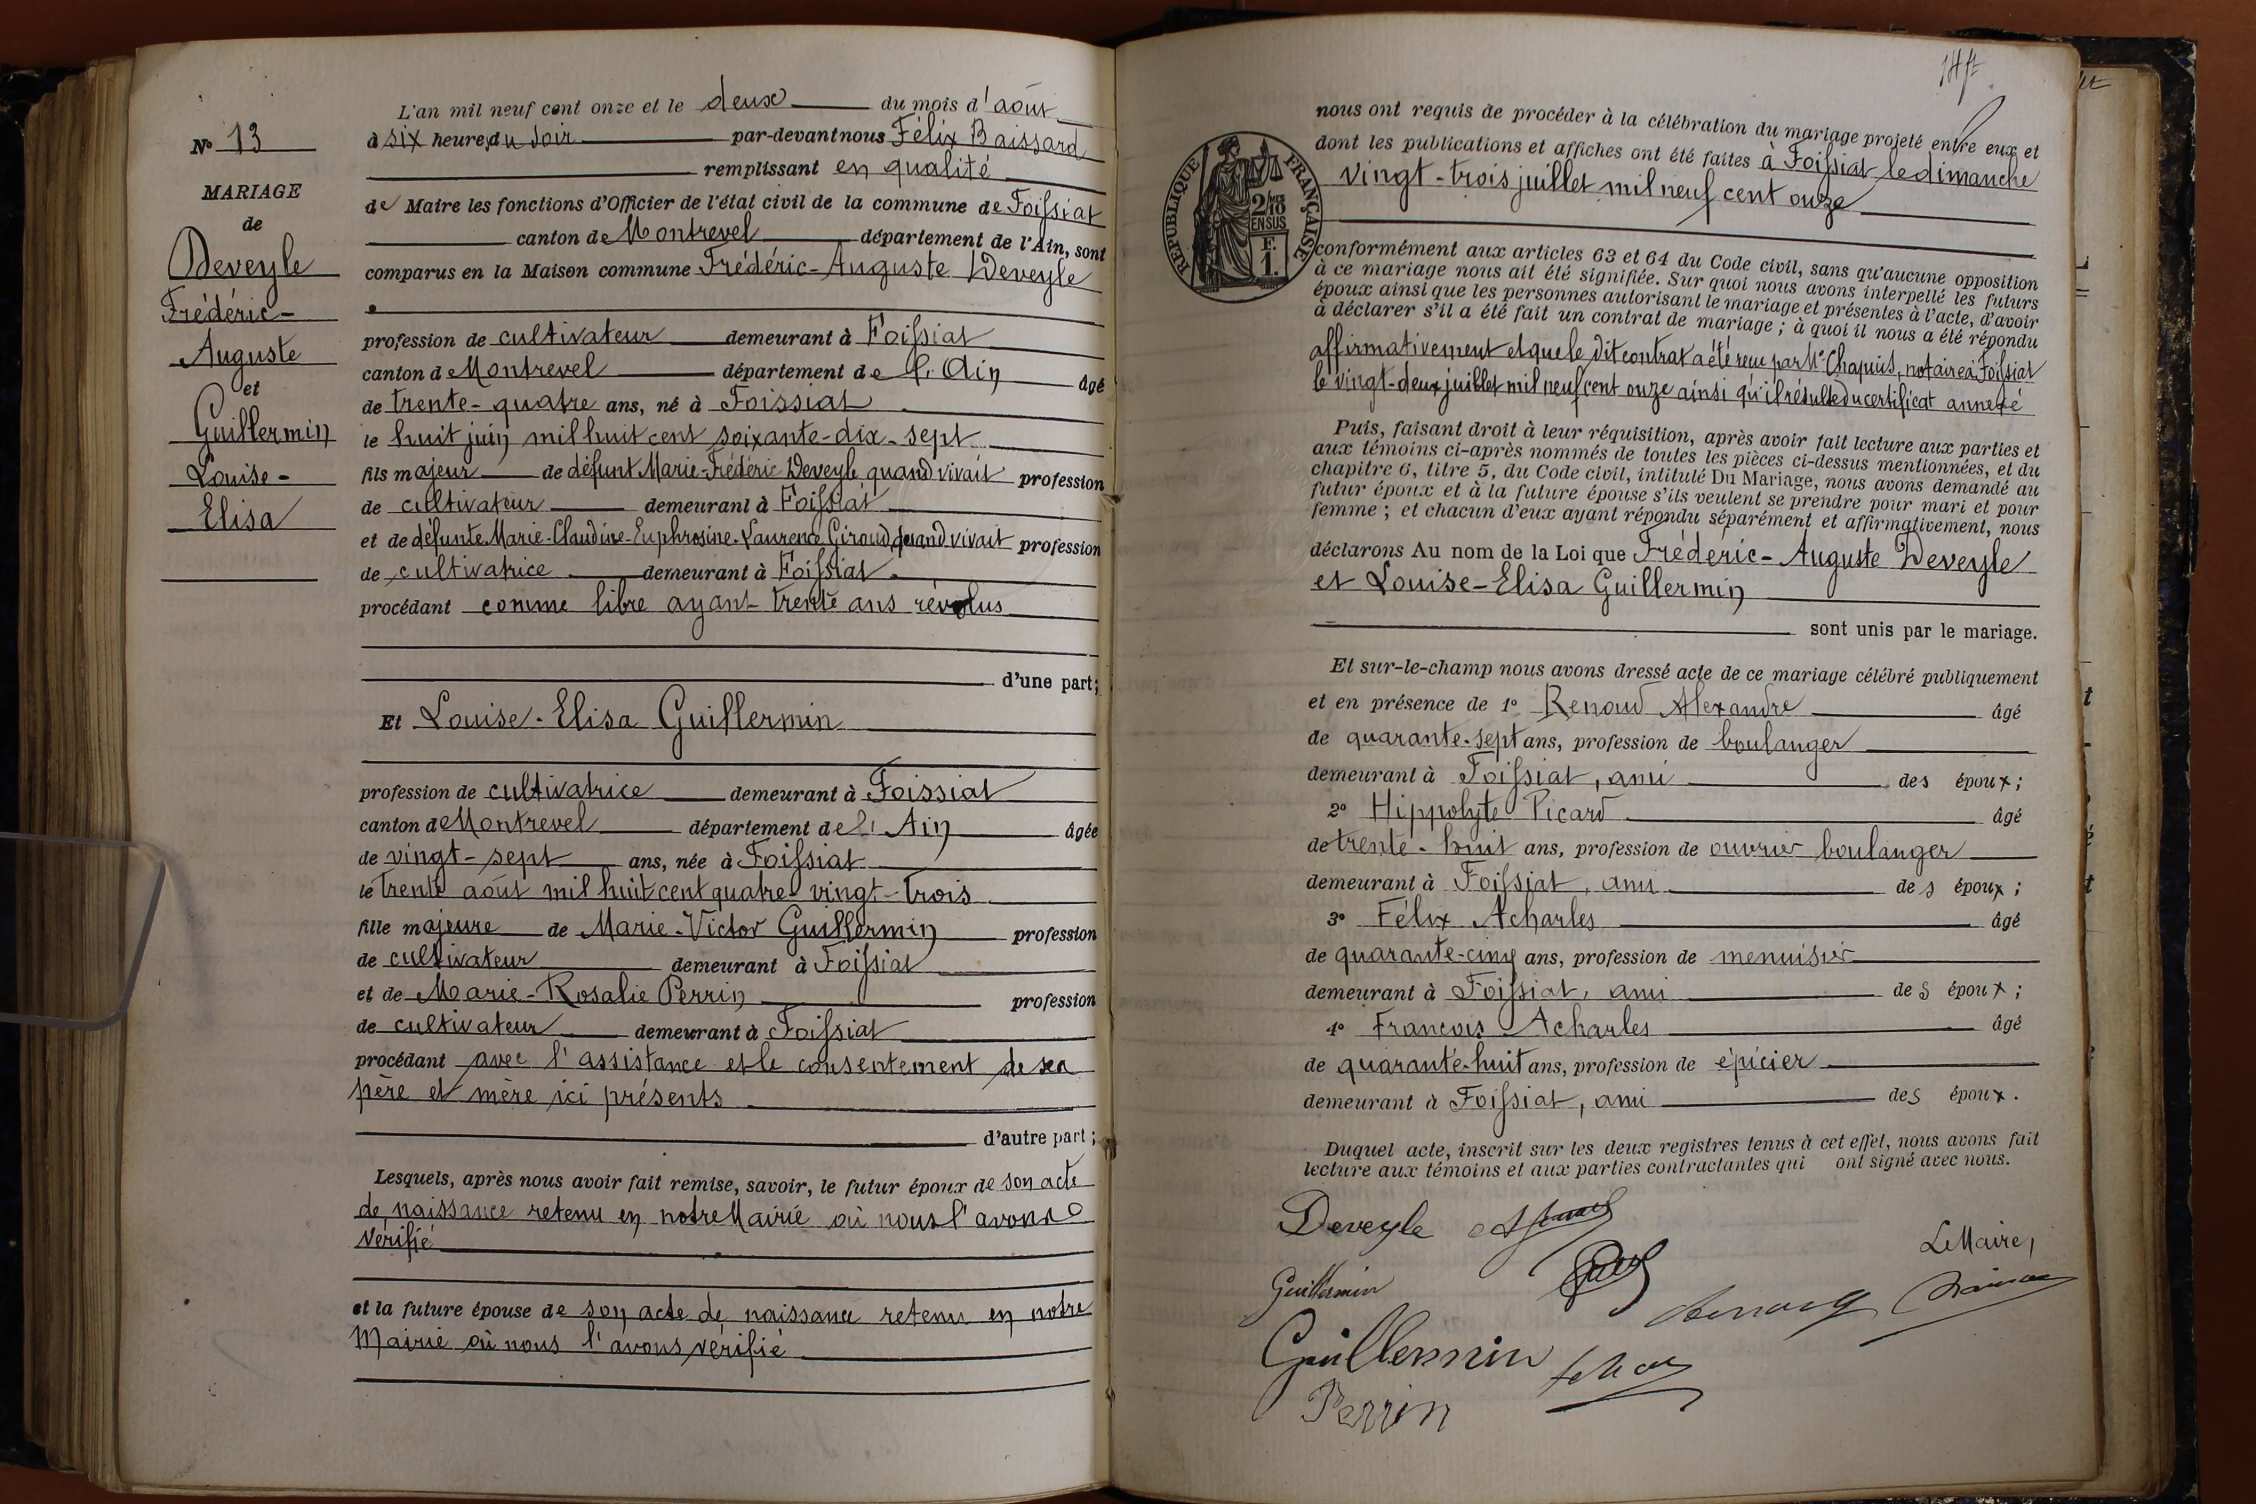 L'an mil neuf cent onze et le deux du mois d'août
à six heures du soir par-devant nous Félix Baissard
remplissant en qualité
de Maire les fonctions d'Officier de l'état civil de la commune de Foissiat
canton de Montrevel département de l'Ain, sont
comparus en la Maison commune Frédéric-Auguste Deveyle
profession de cultivateur demeurant à Foissiat
canton de Montrevel département de l'Ain âgé
de trente-quatre ans, né à Foissiat
le huit juin mil huit cent soixante-dix-sept
fils majeur de défunt Marie-Frédéric Deveyle quand vivait profession
de cultivateur demeurant à Foissiat
et de défunte Marie-Claudine-Euphrosine-Laurence Giroud, quand vivait profession
de cultivatrice demeurant à Foissiat
procédant comme libre ayant trente ans révolus
d'une part;
Et Louise-Elisa Guillermin
profession de cultivatrice demeurant à Foissiat
canton de Montrevel département de l'Ain âgée
de vingt-sept ans, née à Foissiat
le trente août mil huit cent quatre-vingt-trois
fille majeure de Marie-Victor Guillermin profession
de cultivateur demeurant à Foissiat
et de Marie-Rosalie Perrin profession
de cultivateur demeurant à Foissiat
procédant avec l'assistance et le consentement de ses
père et mère ici présents
d'autre part;
Lesquels, après nous avoir fait remise, savoir, le futur époux de son acte
de naissance retenu en notre Mairie où nous l'avons
vérifié
et la future épouse de son acte de naissance retenu en notre
Mairie où nous l'avons vérifié
No 13
MARIAGE
de
Deveyle
Frédéric-
Auguste
et
Guillermin
Louise-
Elisa
RÉPUBLIQUE FRANÇAISE
2/10
EN SUS
F.
1.
nous ont requis de procéder à la célébration du mariage projeté entre eux et
dont les publications et affiches ont été faites à Foissiat le dimanche
vingt-trois juillet mil neuf cent onze
conformément aux articles 63 et 64 du Code civil, sans qu'aucune opposition
à ce mariage nous ait été signifiée. Sur quoi nous avons interpellé les futurs
époux ainsi que les personnes autorisant le mariage et présentes à l'acte, d'avoir
à déclarer s'il a été fait un contrat de mariage; à quoi il nous a été répondu
affirmativement et que le dit contrat a été reçu par Me Chapuis, notaire à Foissiat
le vingt-deux juillet mil neuf cent onze ainsi qu'il résulte du certificat annexé
Puis, faisant droit à leur réquisition, après avoir fait lecture aux parties et
aux témoins ci-après nommés de toutes les pièces ci-dessus mentionnées, et du
chapitre 6, titre 5, du Code civil, intitulé Du Mariage, nous avons demandé au
futur époux et à la future épouse s'ils veulent se prendre pour mari et pour
femme; et chacun d'eux ayant répondu séparément et affirmativement, nous
déclarons Au nom de la Loi que Frédéric-Auguste Deveyle
et Louise-Elisa Guillermin
sont unis par le mariage.
Et sur-le-champ nous avons dressé acte de ce mariage célébré publiquement
et en présence de 1° Renoud Alexandre âgé
de quarante-sept ans, profession de boulanger
demeurant à Foissiat, ami des époux;
2° Hippolyte Picard âgé
de trente-huit ans, profession de ouvrier boulanger
demeurant à Foissiat, ami des époux;
3° Félix Acharles âgé
de quarante-cinq ans, profession de menuisier
demeurant à Foissiat, ami des époux;
4° François Acharles âgé
de quarante-huit ans, profession de épicier
demeurant à Foissiat, ami des époux.
Duquel acte, inscrit sur les deux registres tenus à cet effet, nous avons fait
lecture aux témoins et aux parties contractantes qui ont signé avec nous.
Deveyle
Le Maire,
Guillermin
Guillermin
Perrin